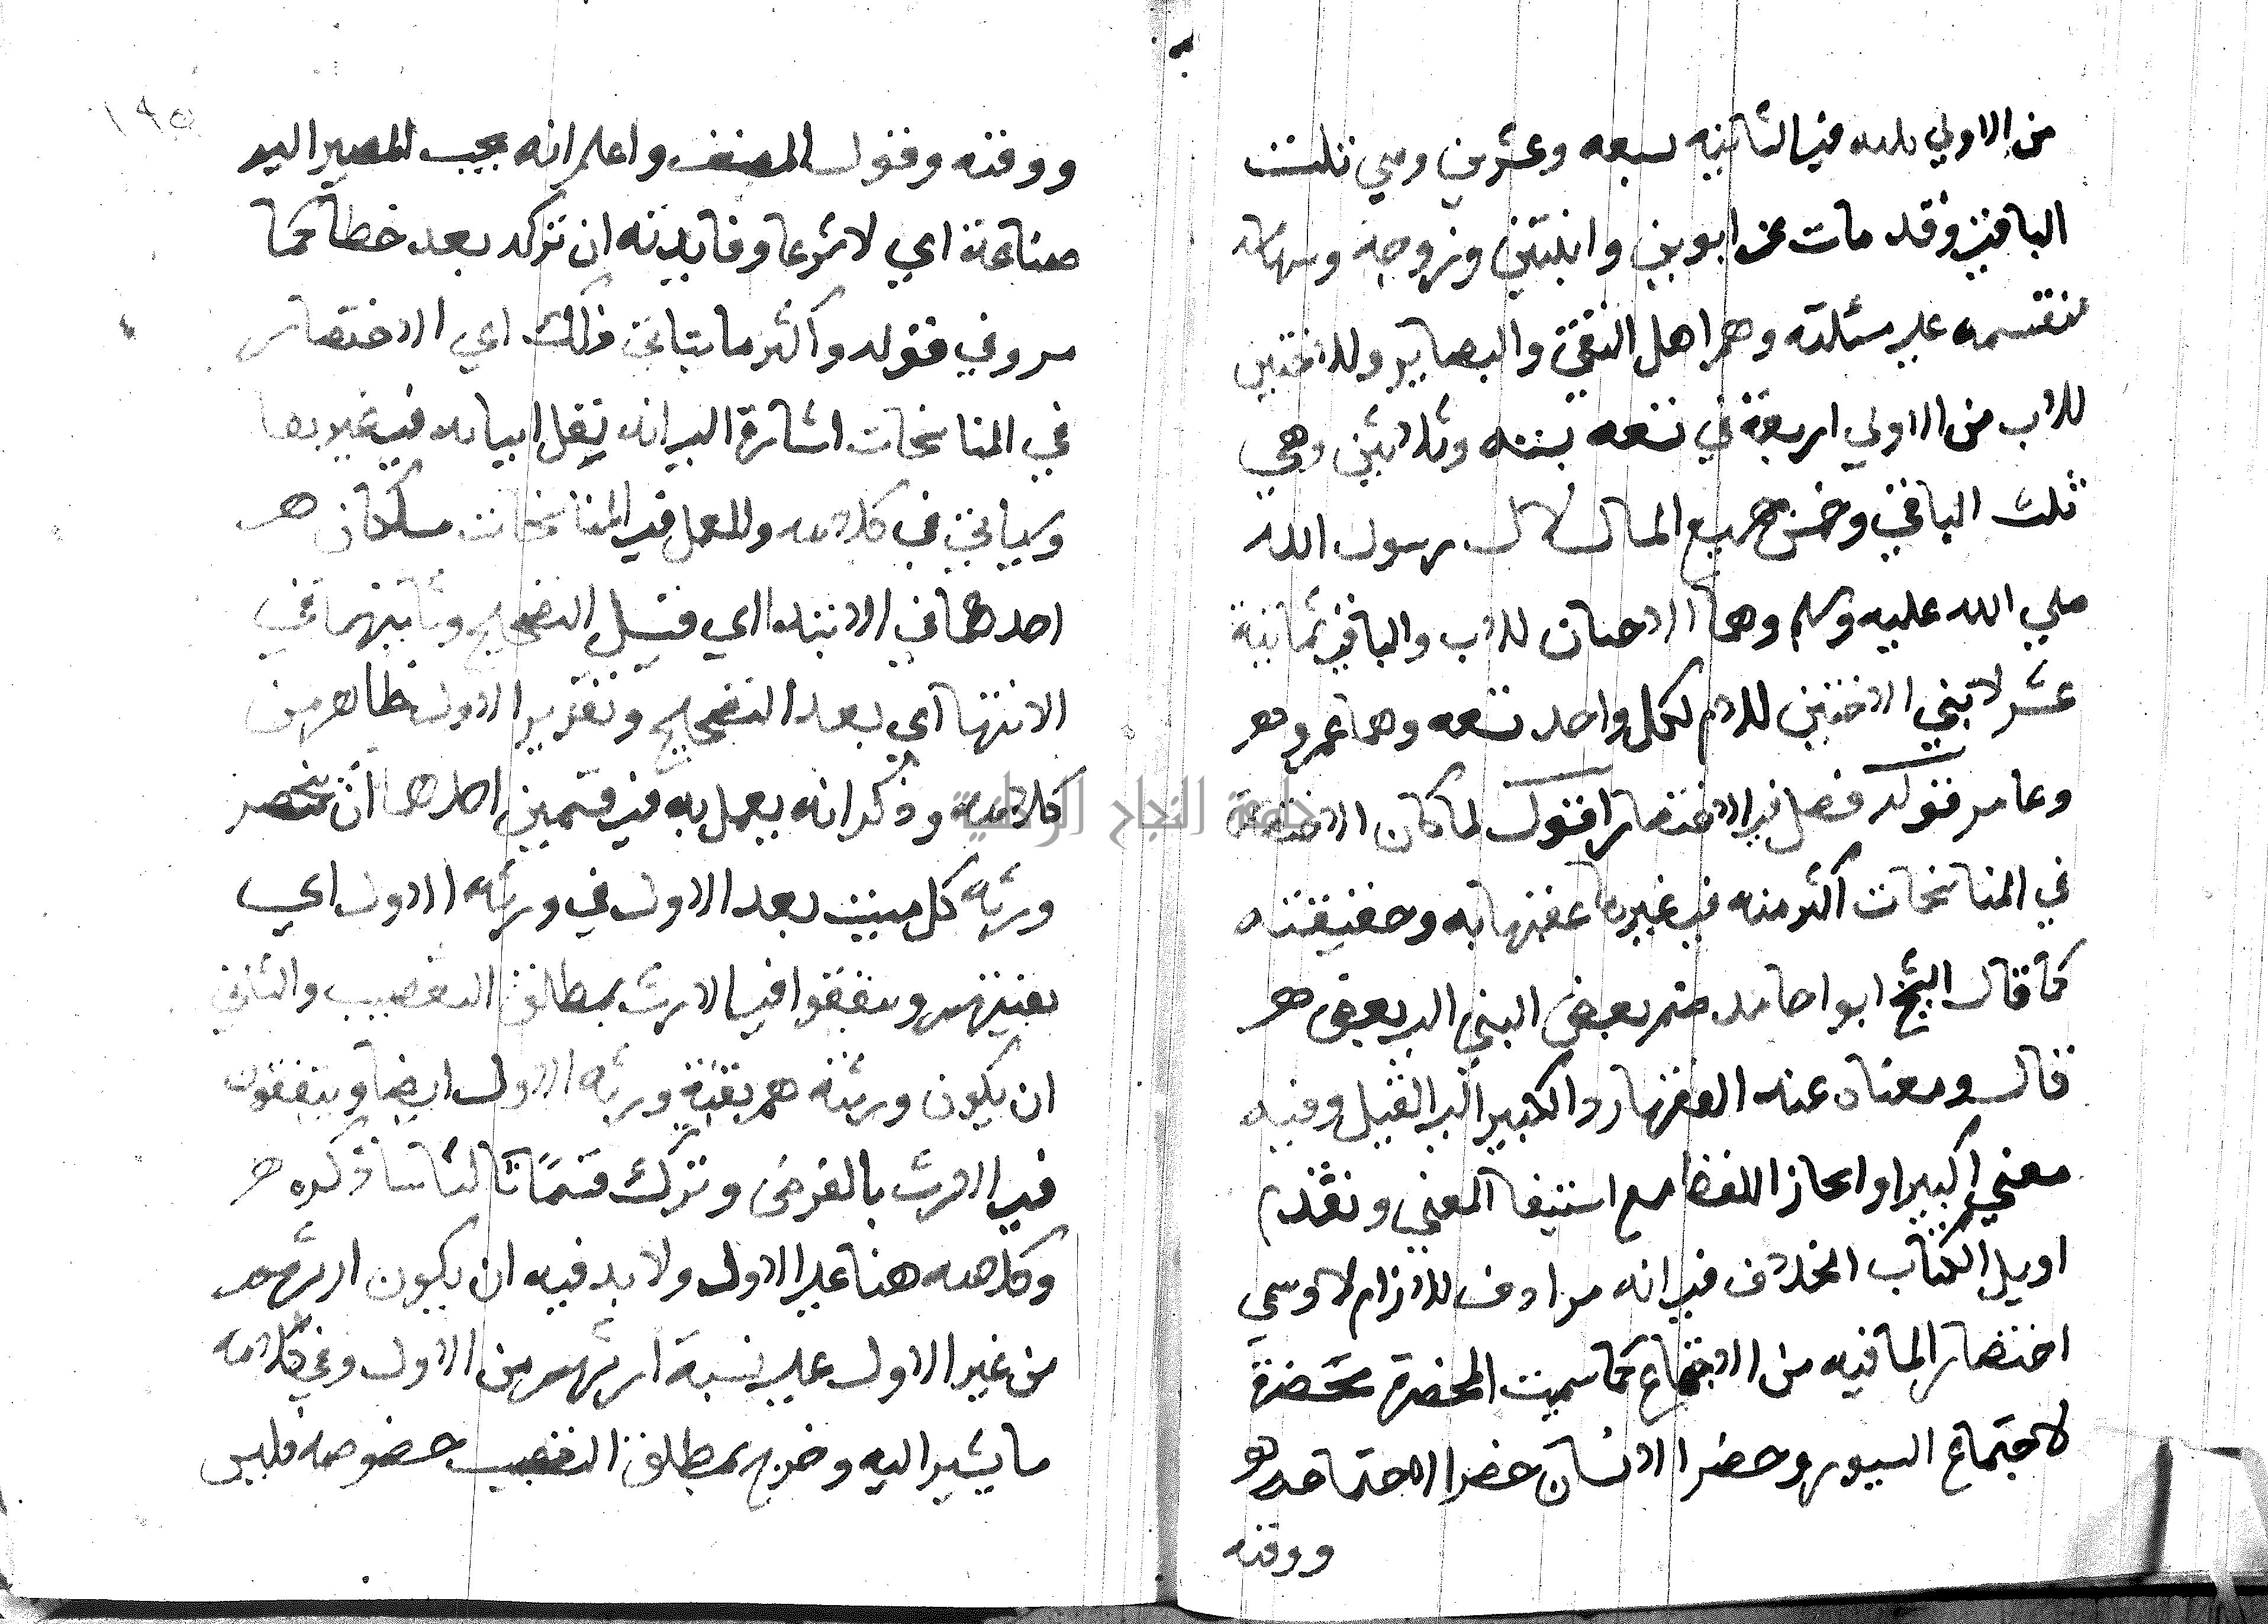 من الاولي ثلاثه في الثانيه سبعه وعشرين وهي ثلث
الباقي وقد مات عن ابوين وابنتين وزوجة وسهامه
منقسمه علي مسئلته وهم اهل التقي والبصاير وللاختين
للاب من الاولي اربعة في تسعه بسته وثلاثين وهي
ثلث الباقي وخمس وربع المال لال رسول الله
صلي الله عليه وسلم وهما الاختان للاب والباقي ثمانية
عشر لابني الاختين للام لكل واحد تسعه وهما عمرو
وعامر قوله فصل في الاختصار اقول لما كان الاختصار
في المناسخات اكثر منه في غيرها عقبها به وحقيقته
كما قال الشيخ ابوا حامد ضم بعض الشي الي بعض
قال ومعناه عند الفقها رد الكثير الي القليل وفيه
معني الكبير او ايجاز اللفظ مع استيفا المعني وتقدم
اويل الكتاب الخلاف في انه مرادف للايجاز ام لا وسمي
اختصارا لما فيه من الاجتماع كما سميت المخصرة مخصرة
لاجتماع السيور وخصر الانسان خصرا لاجتماعه
ووقته
١٩٥
ووقته وقول المصنف واعلم انه يجب المصير اليه
صناعة اي لا شرعا وفايدته ان تركه بعد خطأ كما
مر وفي قوله واكثر ما يتاتي ذلك اي الاختصار
في المناسخات اشارة الي انه يقل اتيانه في غيرها
وسياتي في كلامه وللعمل في المناسخات مسلكان
احدهما في الابتدا اي قبل التصحيح وثانيهما في
الانتها اي بعد التصحيح وتقرير الاول ظاهر من
كلامه وذكر انه يعمل به في قسمين احدهما ان ينحصر
ورثه كل ميت بعد الاول في ورثه الاول اي
بقيتهم ويتفقوا في الارث بمطلق التعصيب والثاني
ان يكون ورثته هم بقية ورثه الاول ايضا ويتفقون
في الارث بالفرض وترك قسما ثالثا ذكره
وكلامه هنا علي الاول ولا بد فيه ان يكون ارثهم
من غير الاول علي نسبة ارثهم من الاول وفي كلامه
ما يشير اليه وخرج بمطلق التعصيب خصوصه فليس